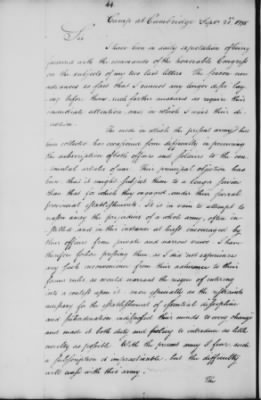 44
Camp at Cambridge Septr 21st 1775
Sir
I have been in daily expectation of being
favored with the commands of the honorable Congress
on the subjects of my two last letters. The season now
advances so fast that I cannot any longer defer lay
ing before them such further measures as require their
immediate attention, and in which I wait their de
cision.
The mode in which the present army has
been collected has occasioned some difficulty in procuring
the subscription of both officers and soldiers to the con
tinental articles of war. Their principal objection has
been that it might subject them to a longer service
than that for which they engaged under their several
provincial establishments. It is in vain to attempt to
reason away the prejudices of a whole army, often in
stilled and in this instance at least encouraged by
their officers from private and narrow views. I have
therefore forbore pressing them as I did not experience
any such inconvenience from their adherence to their
former rules, as would warrant the risque of entering
into a contest upon it more especially as the restraints
necessary for the establishment of essential discipline
and subordination indisposed their minds to every change
and made it both duty and policy to introduce as little
novelty as possible. With the present army I fear such
a subscription is impracticable, but the difficulty
will cease with this army.
The